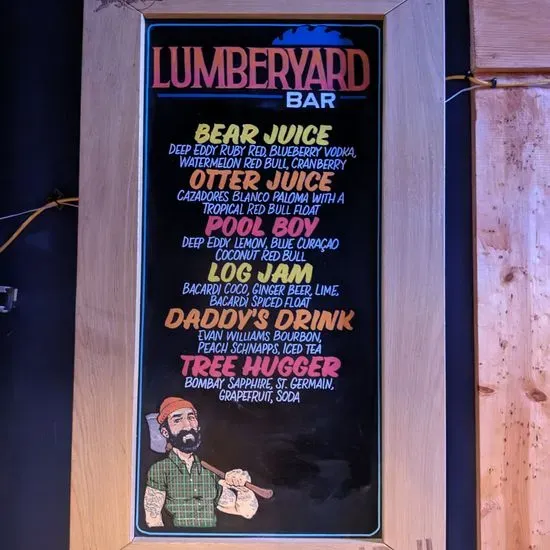 LUMBERYARD
BAR
BEAR JUICE
DEEP EDDY RUBY RED, BLUEBERRY VODKA,
WATERMELON RED BULL, CRANBERRY
OTTER JUICE
CAZADORES BLANCO PALOMA WITH A
TROPICAL RED BULL FLOAT
POOL BOY
DEEP EDDY LEMON, BLUE CURAÇAO
COCONUT RED BULL
LOG JAM
BACARDI COCO, GINGER BEER, LIME,
BACARDI SPICED FLOAT
DADDY'S DRINK
EVAN WILLIAMS BOURBON,
PEACH SCHNAPPS, ICED TEA
TREE HUGGER
BOMBAY SAPPHIRE, ST. GERMAIN,
GRAPEFRUIT, SODA